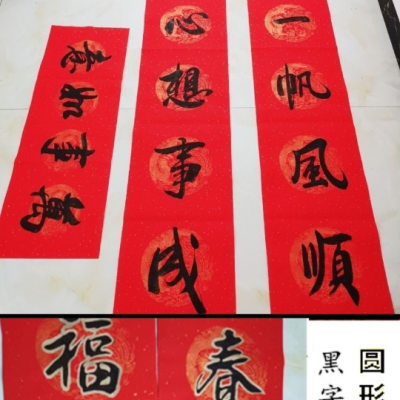 一帆風順
心想事成
萬事如意
福
春
圆形
黑字